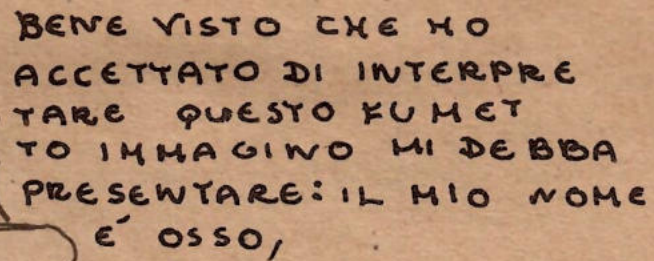 BENE VISTO CHE HO
ACCETTATO DI INTERPRE
TARE QUESTO FUMET
TO IMMAGINO MI DEBBA
PRESENTARE: IL MIO NOME
É OSSO,